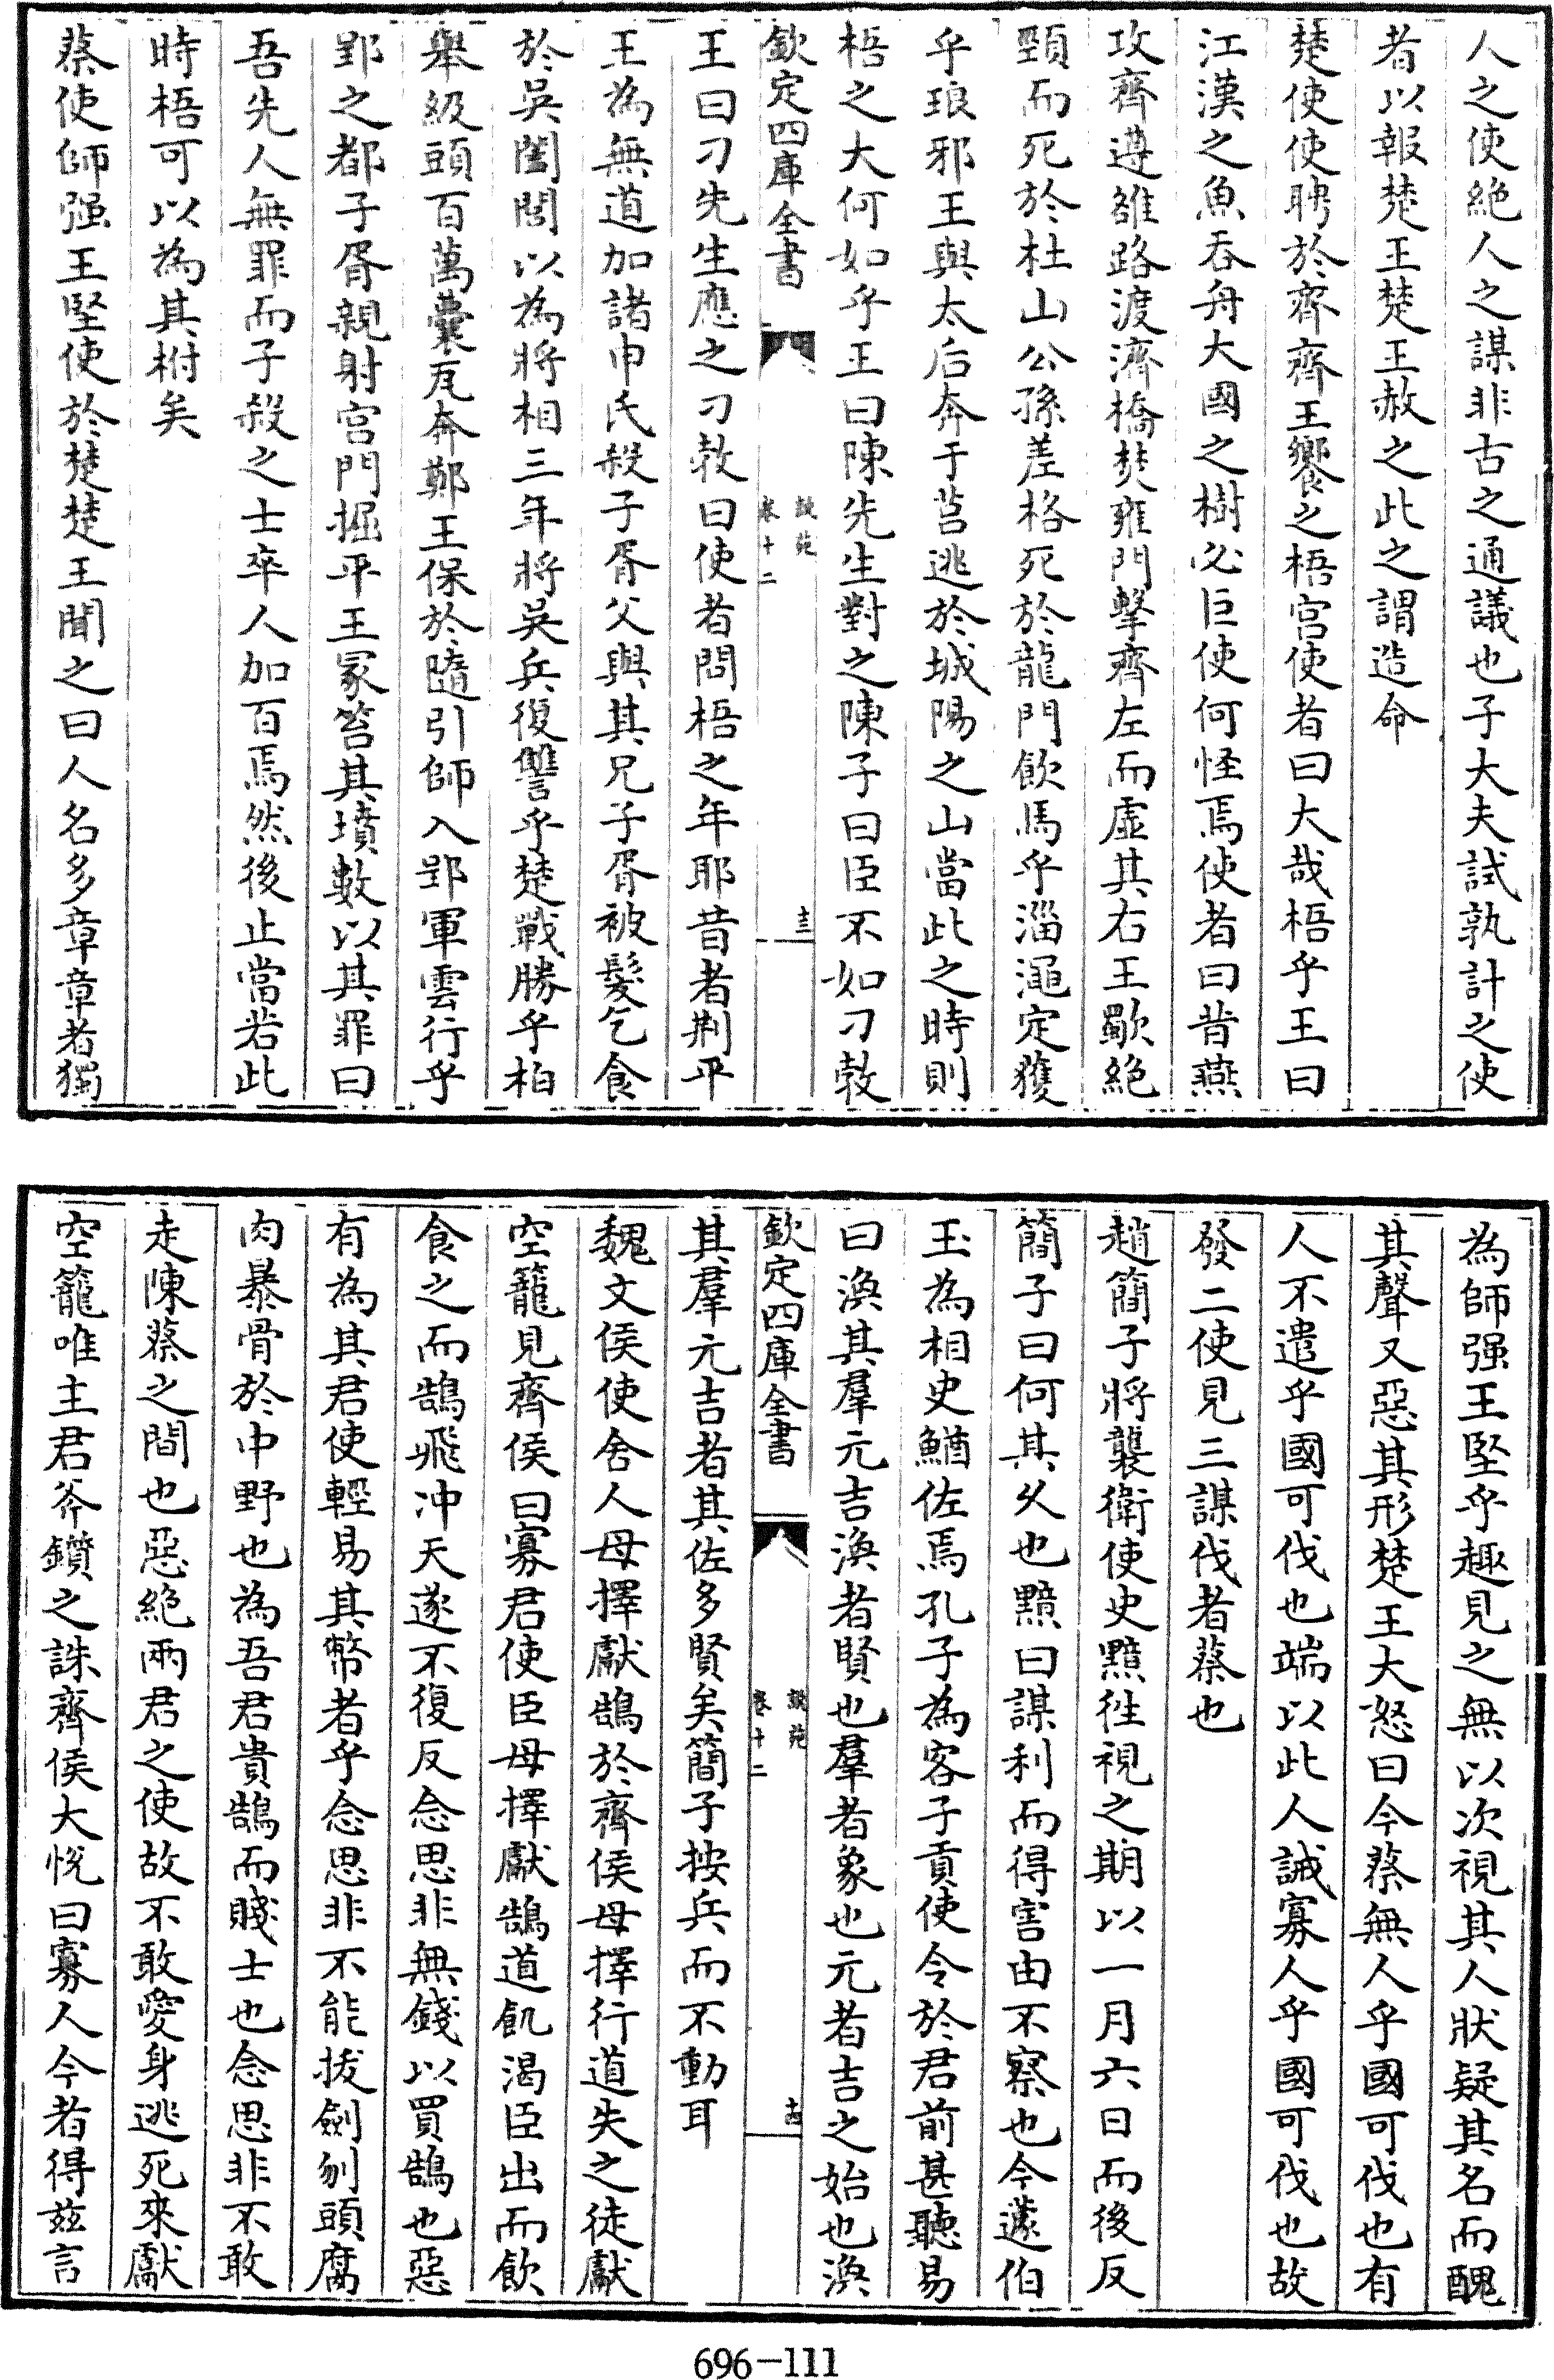 人之使絶人之謀非古之通議也子大夫試孰計之使
者以報楚王楚王赦之此之謂造命
楚使使聘於齊齊王饗之梧宫使者曰大哉梧乎王曰
江漢之魚吞舟大國之樹必巨使何怪焉使者曰昔燕
攻齊遵雒路渡濟橋焚雍門擊齊左而虚其右王歜絶
頸而死於杜山公孫差格死於龍門飲馬乎淄澠定獲
乎琅邪王與太后奔于莒逃於城陽之山當此之時則
梧之大何如乎王曰陳先生對之陳子曰臣不如刁敦
欽定四庫全書
說苑
卷十二
十三
王曰刁先生應之刁敦曰使者問梧之年耶昔者荆平
王為無道加諸申氏殺子胥父與其兄子胥被髮乞食
於吳闔閭以為將相三年將吳兵復讐乎楚戰勝乎柏
舉級頭百萬囊瓦奔鄭王保於隨引師入郢軍雲行乎
郢之都子胥親射宫門掘平王冢笞其墳數以其罪曰
吾先人無罪而子殺之士卒人加百焉然後止當若此
時梧可以為其柎矣
蔡使師强王堅使於楚楚王聞之曰人名多章章者獨
為師强王堅乎趣見之無以次視其人狀疑其名而醜
其聲又惡其形楚王大怒曰今蔡無人乎國可伐也有
人不遣乎國可伐也端以此人誡寡人乎國可伐也故
發二使見三謀伐者蔡也
趙簡子將襲衛使史黯徃視之期以一月六日而後反
簡子曰何其久也黯曰謀利而得害由不察也今蘧伯
玉為相史鰌佐焉孔子為客子貢使令於君前甚聽易
曰渙其羣元吉渙者賢也羣者象也元者吉之始也渙
欽定四庫全書
說苑
卷十二
十四
其羣元吉者其佐多賢矣簡子按兵而不動耳
魏文侯使舍人母擇獻鵠於齊侯母擇行道失之徒獻
空籠見齊侯曰寡君使臣母擇獻鵠道飢渴臣出而飲
食之而鵠飛冲天遂不復反念思非無錢以買鵠也惡
有為其君使輕易其幣者乎念思非不能拔劍刎頭腐
肉暴骨於中野也為吾君貴鵠而賤士也念思非不敢
走陳蔡之間也惡絶兩君之使故不敢愛身逃死來獻
空籠唯主君斧鑕之誅齊侯大悦曰寡人今者得兹言
696-111